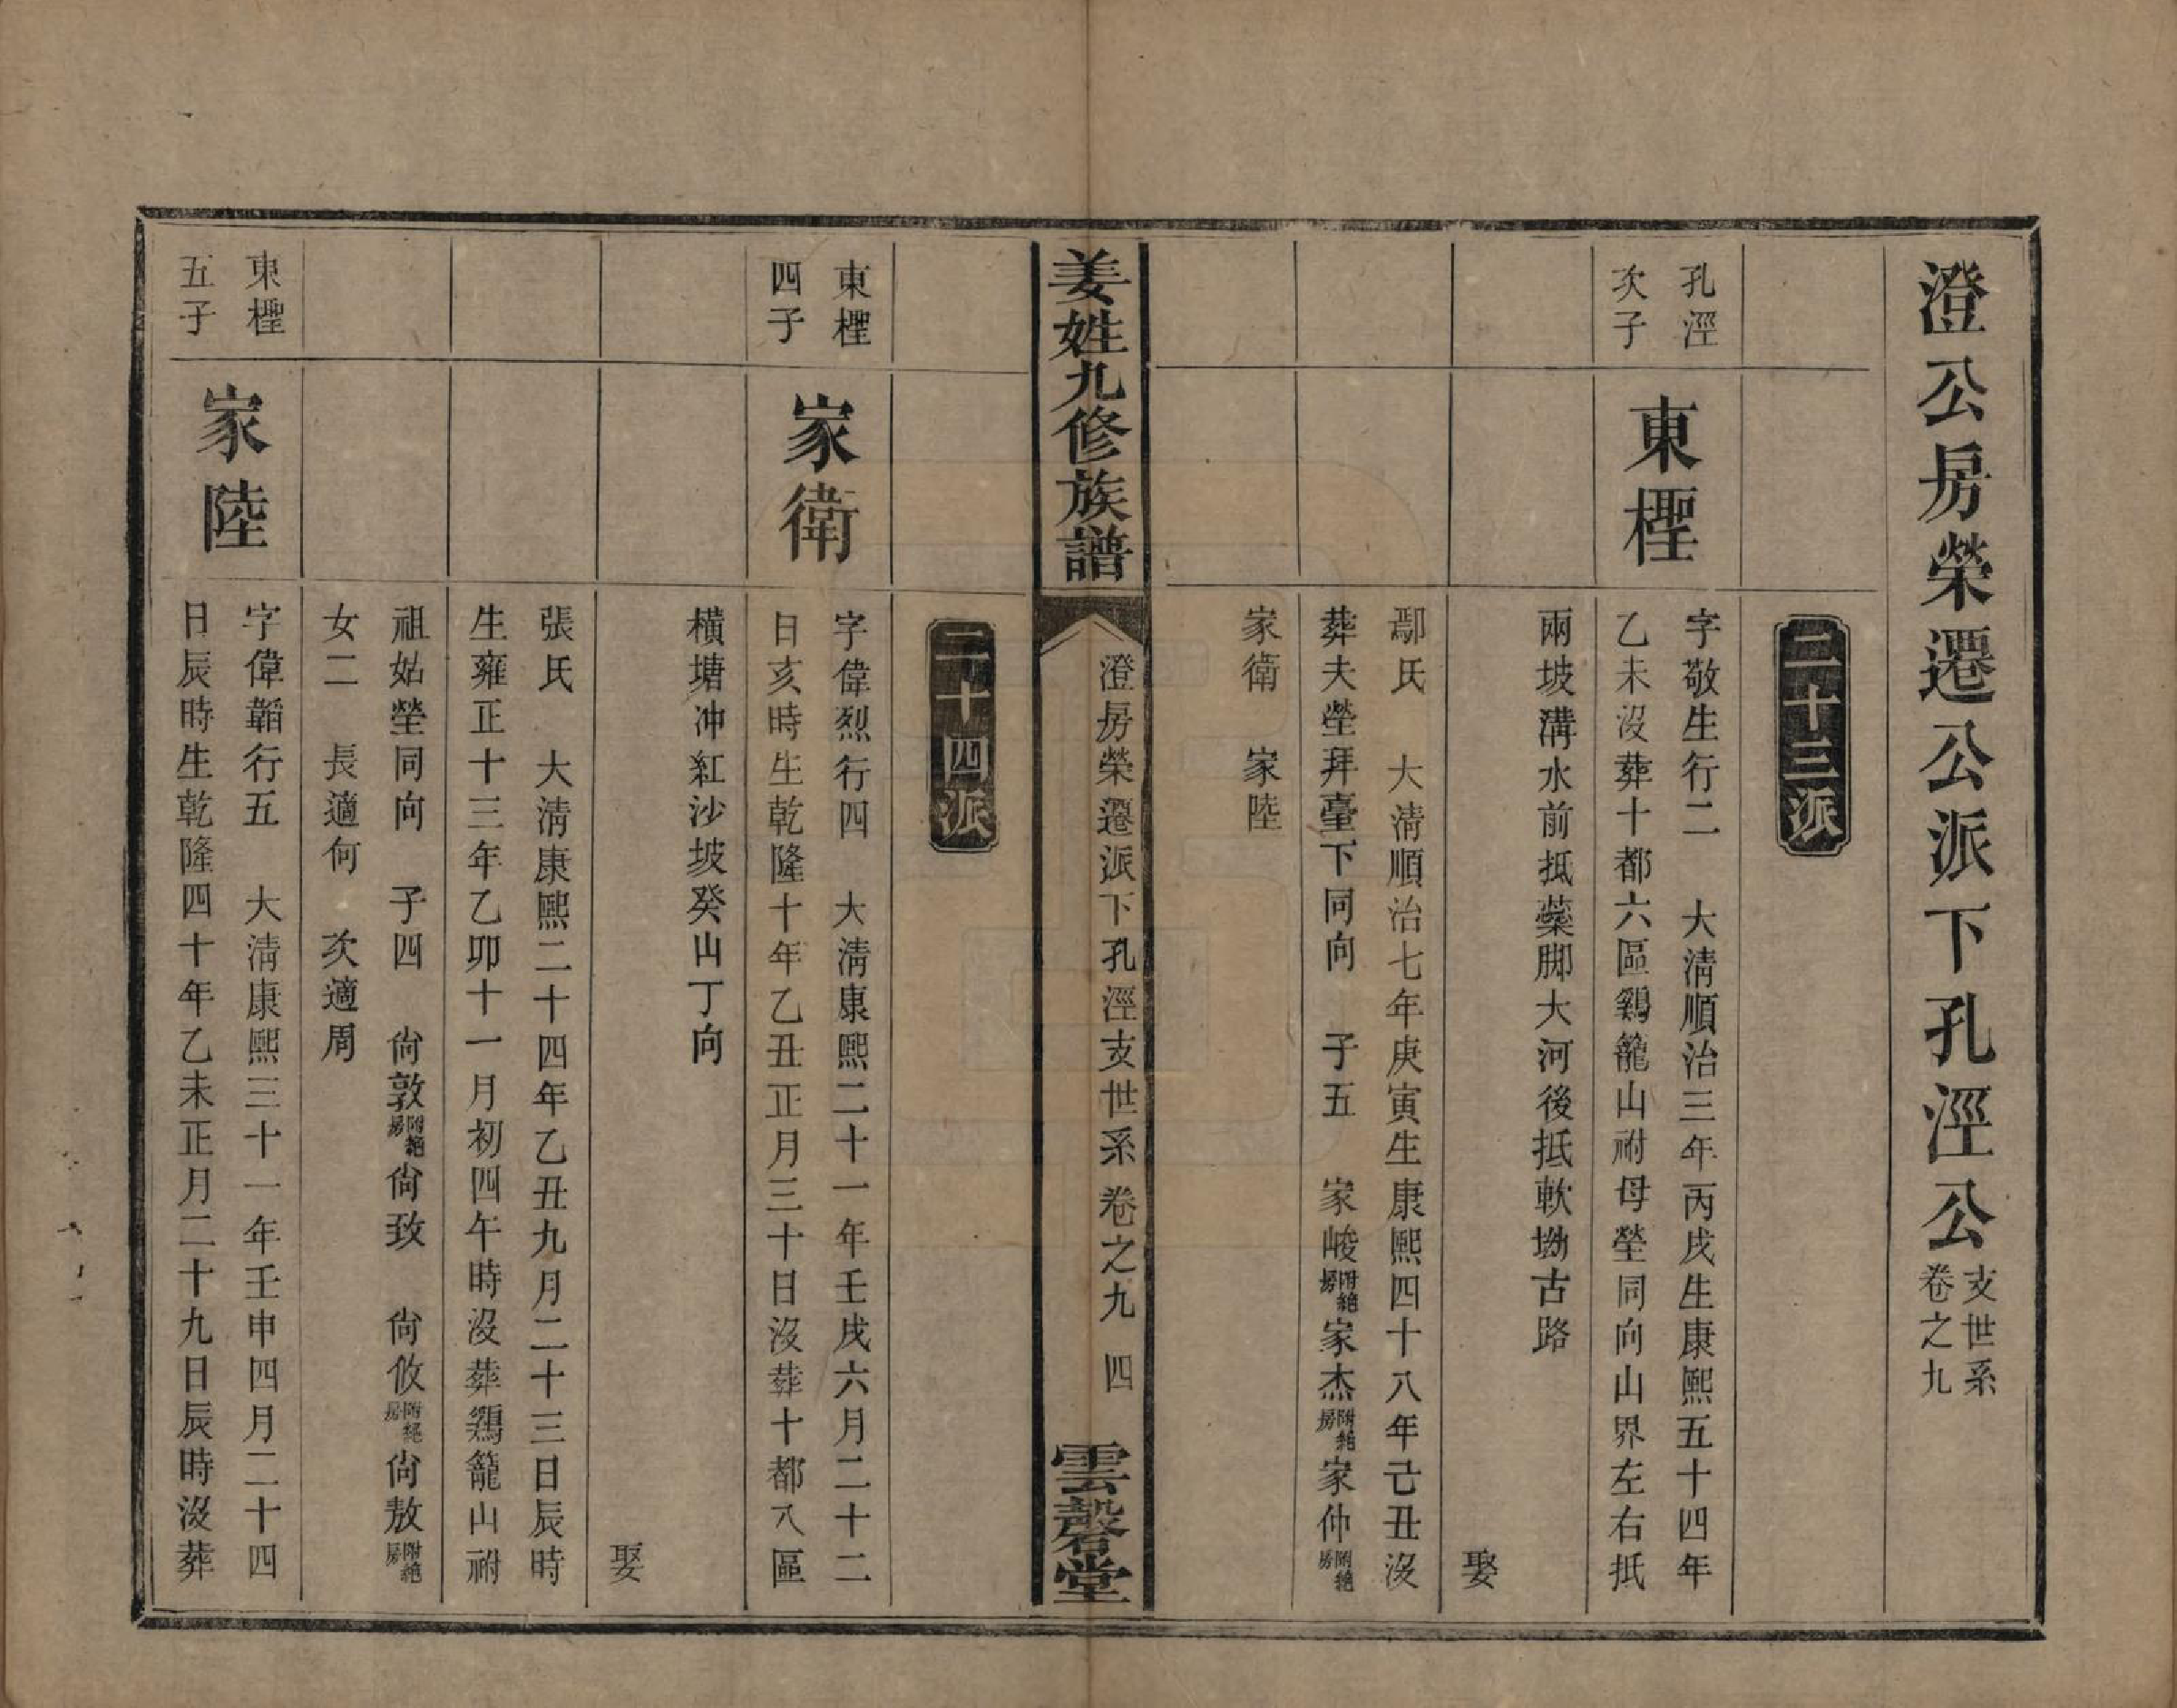 澄公房榮遷公派下孔涇公
支世系
卷之九
二十三派
孔涇
次子
東檉
字敬生行二 大淸順治三年丙戌生康熙五十四年
乙未沒葬十都六區鷄籠山祔母塋同向山界左右抵
兩坡溝水前抵藥脚大河後抵軟坳古路
娶
鄢氏 大淸順治七年庚寅生康熙四十八年己丑沒
葬夫塋拜臺下同向 子五 家峻附絕房家杰附絕房家仲附絕房
家衛 家陸
姜姓九修族譜
澄房榮遷派下孔涇支世系 卷之九 四
雲磬堂
二十四派
東檉
四子
家衛
字偉烈行四 大淸康熙二十一年壬戌六月二十二
日亥時生乾隆十年乙丑正月三十日沒葬十都八區
橫塘冲紅沙坡癸山丁向
娶
張氏 大淸康熙二十四年乙丑九月二十三日辰時
生雍正十三年乙卯十一月初四午時沒葬鷄籠山祔
祖姑塋同向 子四 尙敦附絕房尙致 尙攸附絕房尙敖附絕房
女二 長適何 次適周
東檉
五子
家陸
字偉韜行五 大淸康熙三十一年壬申四月二十四
日辰時生乾隆四十年乙未正月二十九日辰時沒葬